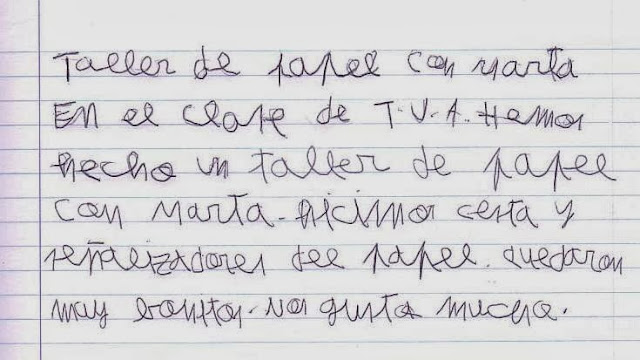 Taller de papel con Marta
En el clase de T.V.A. Hemos
hecho un taller de papel
con Marta. Hicimos cesta y
señalizadores del papel. Quedaron
muy bonitos. Nos gusta mucho.